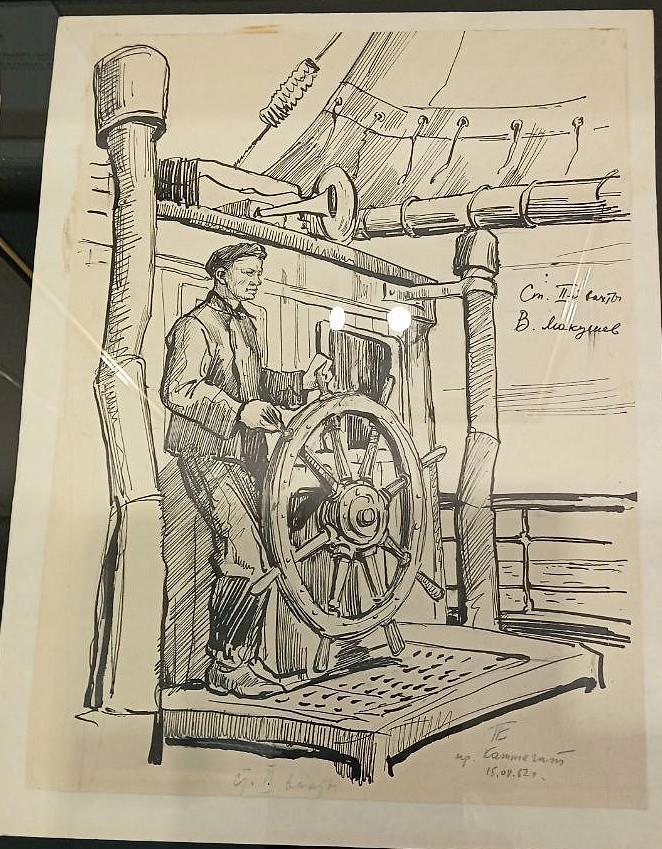 Ст. II-й вахты
В. Макушев
пр. Каттегат
15.08.62г.
Ст. II вахты